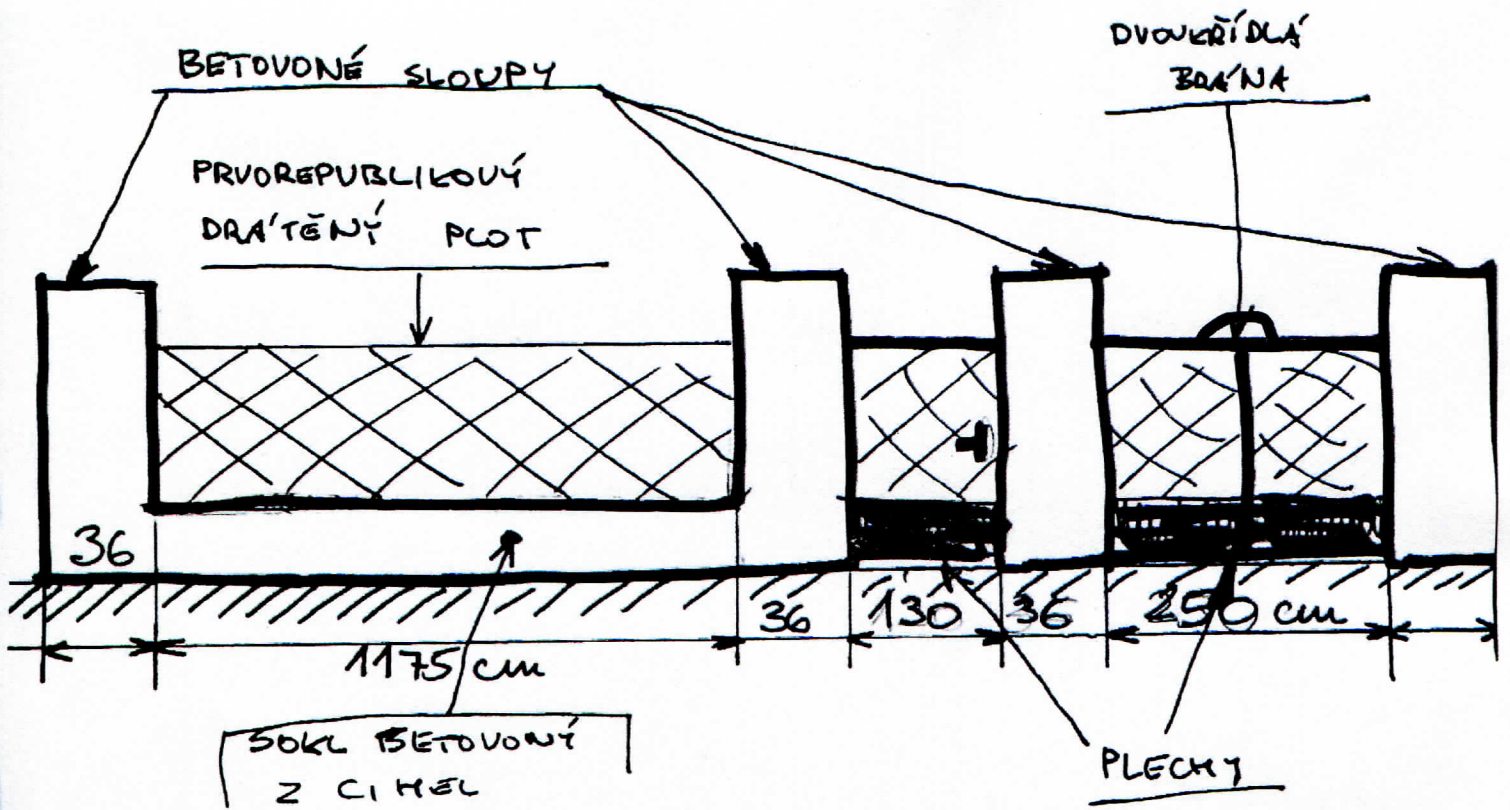 BETOVONÉ SLOUPY
DVOUKŘÍDLÁ
BRÁNA
PRVOREPUBLIKOVÝ
DRÁTĚNÝ PLOT
36
36
130
36
250 cm
1175 cm
SOKL BETOVONÝ
Z CIHEL
PLECHY